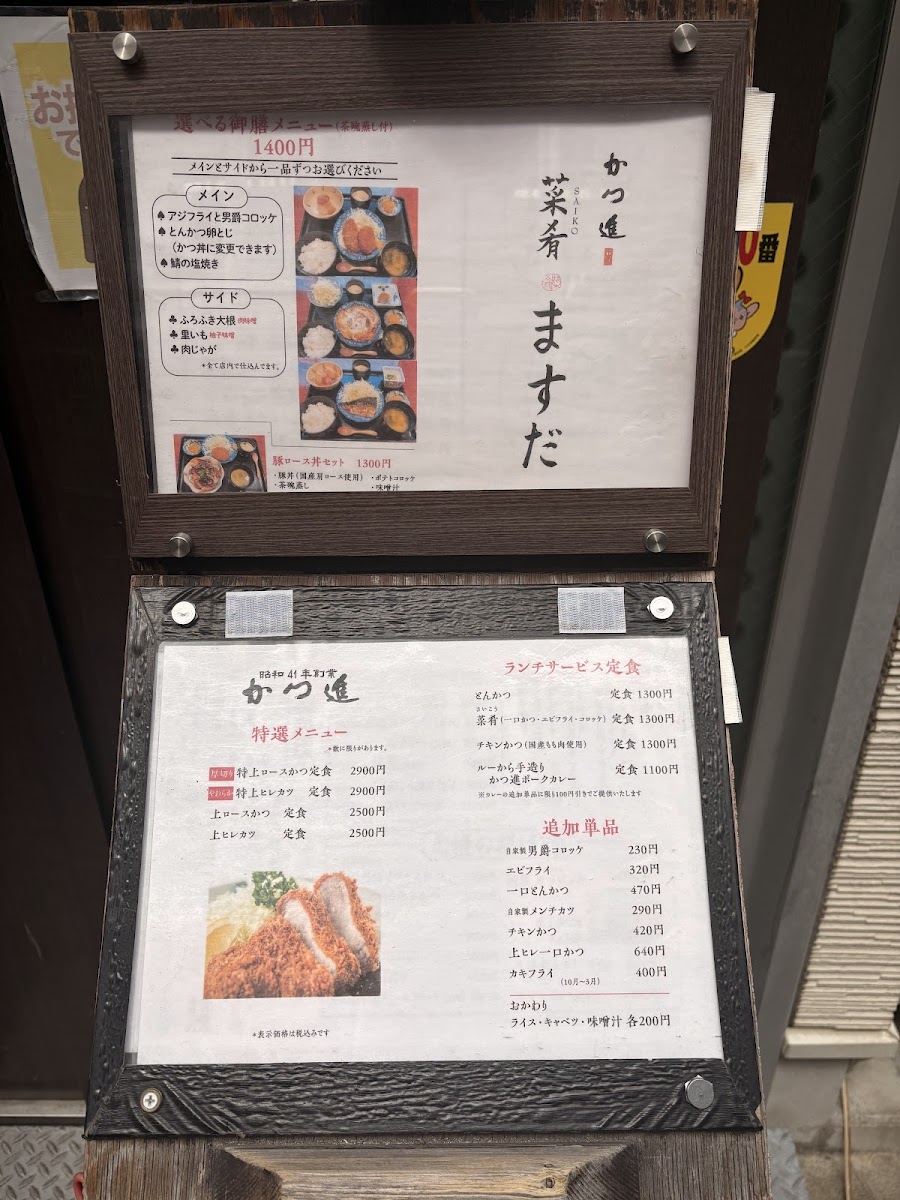 選べる御膳メニュー(茶碗蒸し付)
1400円
メインとサイドから一品ずつお選びください
メイン
♠アジフライと男爵コロッケ
♠とんかつ卵とじ
(かつ丼に変更できます)
♠鯖の塩焼き
サイド
♣ふろふき大根 肉味噌
♣里いも 柚子味噌
♣肉じゃが
*全て店内で仕込んでます。
豚ロース丼セット 1300円
・豚丼(国産肩ロース使用) ・ポテトコロッケ
・茶碗蒸し ・味噌汁
かつ進
菜肴
SAIKO
ますだ
番
昭和41年創業
かつ進
特選メニュー
*数に限りがあります。
厚切り 特上ロースかつ定食 2900円
やわらか 特上ヒレカツ 定食 2900円
上ロースかつ 定食 2500円
上ヒレカツ 定食 2500円
*表示価格は税込みです
ランチサービス定食
とんかつ 定食 1300円
さいこう
菜肴(一口かつ・エビフライ・コロッケ) 定食 1300円
チキンかつ(国産もも肉使用) 定食 1300円
ルーから手造り
かつ進ポークカレー 定食 1100円
※カレーの追加単品に限り100円引きでご提供いたします
追加単品
自家製 男爵コロッケ 230円
エビフライ 320円
一口とんかつ 470円
自家製 メンチカツ 290円
チキンかつ 420円
上ヒレ一口かつ 640円
カキフライ 400円
(10月〜3月)
おかわり
ライス・キャベツ・味噌汁 各200円